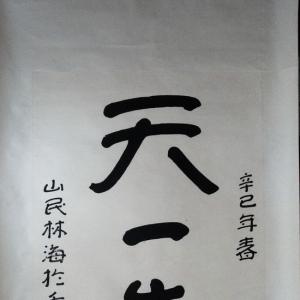 辛巳年春
天一
山民林海於